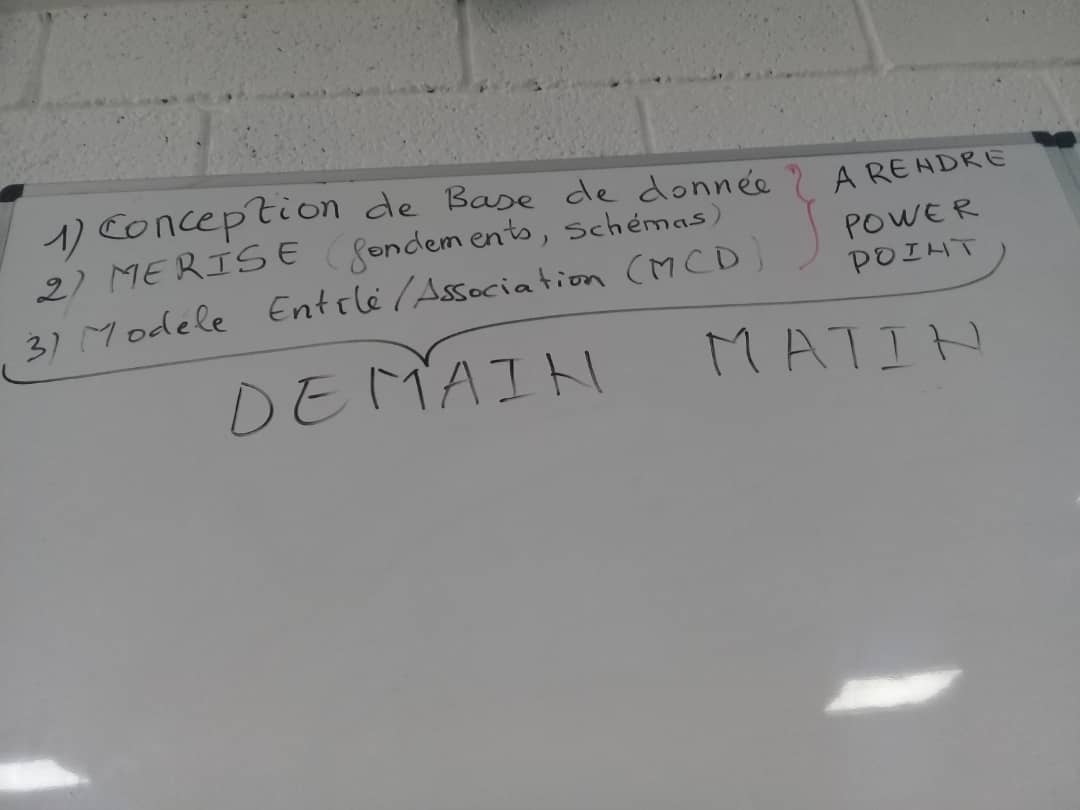 1) Conception de Base de donnée
2) MERISE (fondements, schémas)
3) Modèle Entité/Association (MCD)
A RENDRE
POWER
POINT
DEMAIN MATIN